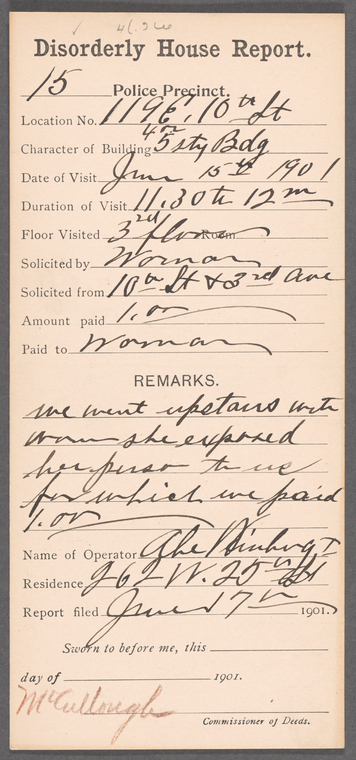 Disorderly House Report.
15 Police Precinct.
Location No. 119 E. 10th St
Character of Building 4 or 5 sty Bdg
Date of Visit June 15th 1901
Duration of Visit 11.30 to 12 m
Floor Visited 3rd floor Room
Solicited by Woman
Solicited from 10th St & 3rd Ave
Amount paid 1.00
Paid to Woman
REMARKS.
we went upstairs with
woman she exposed
her person to us
for which we paid
1.00
Name of Operator Abe
Residence 262 W. 25th St
Report filed June 17th 1901.
Sworn to before me, this
day of 1901.
McCullough
Commissioner of Deeds.